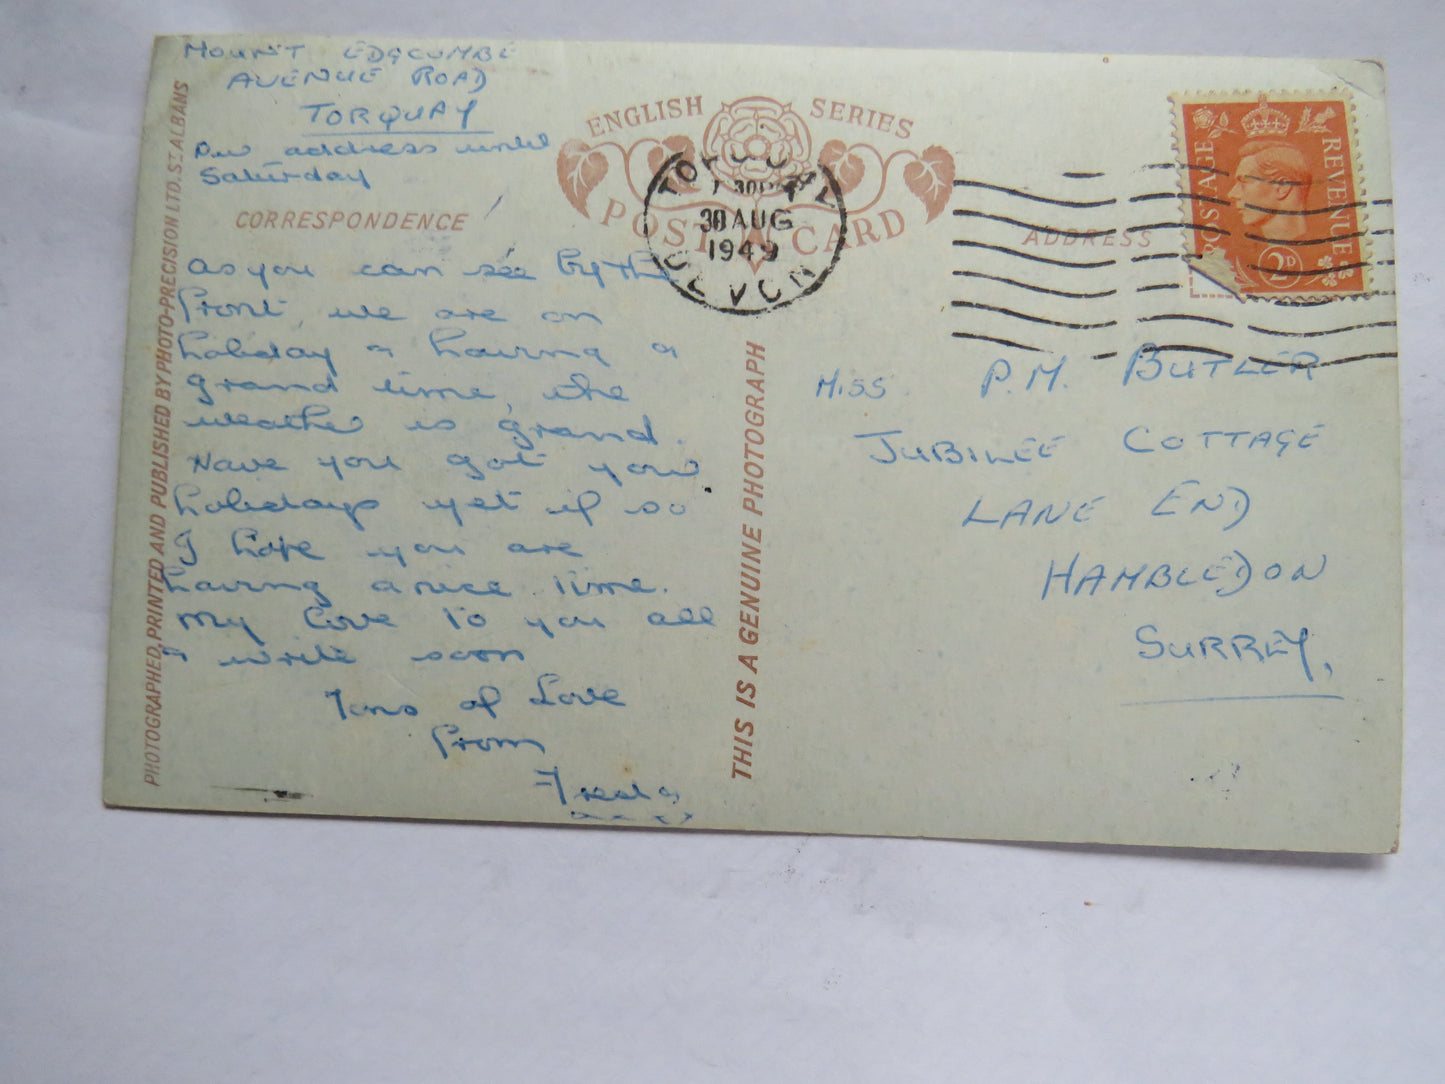 MOUNT EDGCUMBE
AVENUE ROAD
TORQUAY
address until
Saturday
PHOTOGRAPHED, PRINTED AND PUBLISHED BY PHOTO-PRECISION LTD. ST ALBANS
CORRESPONDENCE
as you can see by the
front we are on
holiday & having a
grand time, the
weather is grand.
Have you got your
holidays yet if so
I hope you are
having a nice time.
My love to you all
& write soon
Tons of Love
From
Freda
ENGLISH SERIES
POST CARD
TORQUAY
30 AUG
1949
DEVON
THIS IS A GENUINE PHOTOGRAPH
ADDRESS
POSTAGE REVENUE
2D
MISS P.M. BUTLER
JUBILEE COTTAGE
LANE END
HAMBLEDON
SURREY,